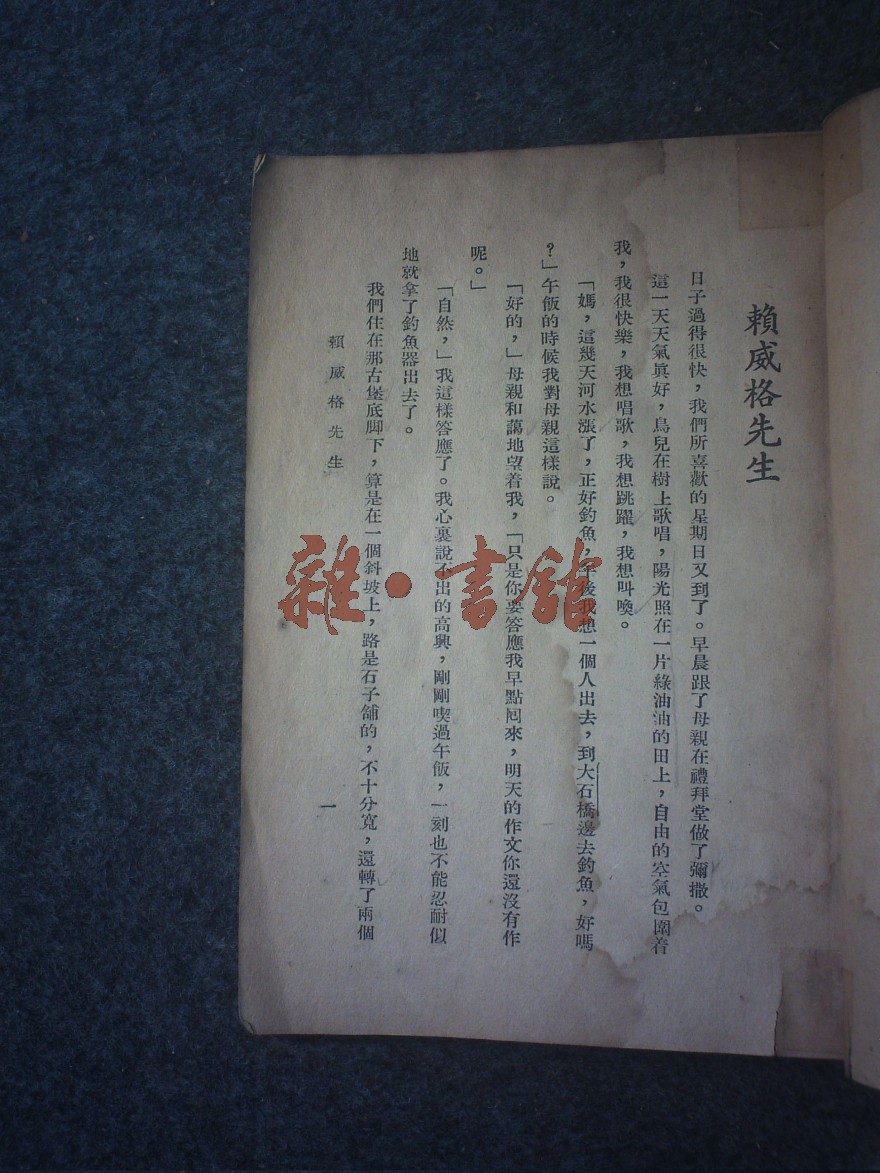 賴威格先生
日子過得很快，我們所喜歡的星期日又到了。早晨跟了母親在禮拜堂做了彌撒。
這一天天氣眞好，鳥兒在樹上歌唱，陽光照在一片綠油油的田上，自由的空氣包圍着
我，我很快樂，我想唱歌，我想跳躍，我想叫喚。
「媽，這幾天河水漲了，正好釣魚，午後我想一個人出去，到大石橋邊去釣魚，好嗎
？」午飯的時候我對母親這樣說。
「好的，」母親和藹地望着我，「只是你要答應我早點囘來，明天的作文你還沒有作
呢。」
「自然，」我這樣答應了。我心裏說不出的高興，剛剛喫過午飯，一刻也不能忍耐似
地就拿了釣魚器出去了。
我們住在那古堡底脚下，算是在一個斜坡上，路是石子舖的，不十分寬，還轉了兩個
賴威格先生
一
雜·書館